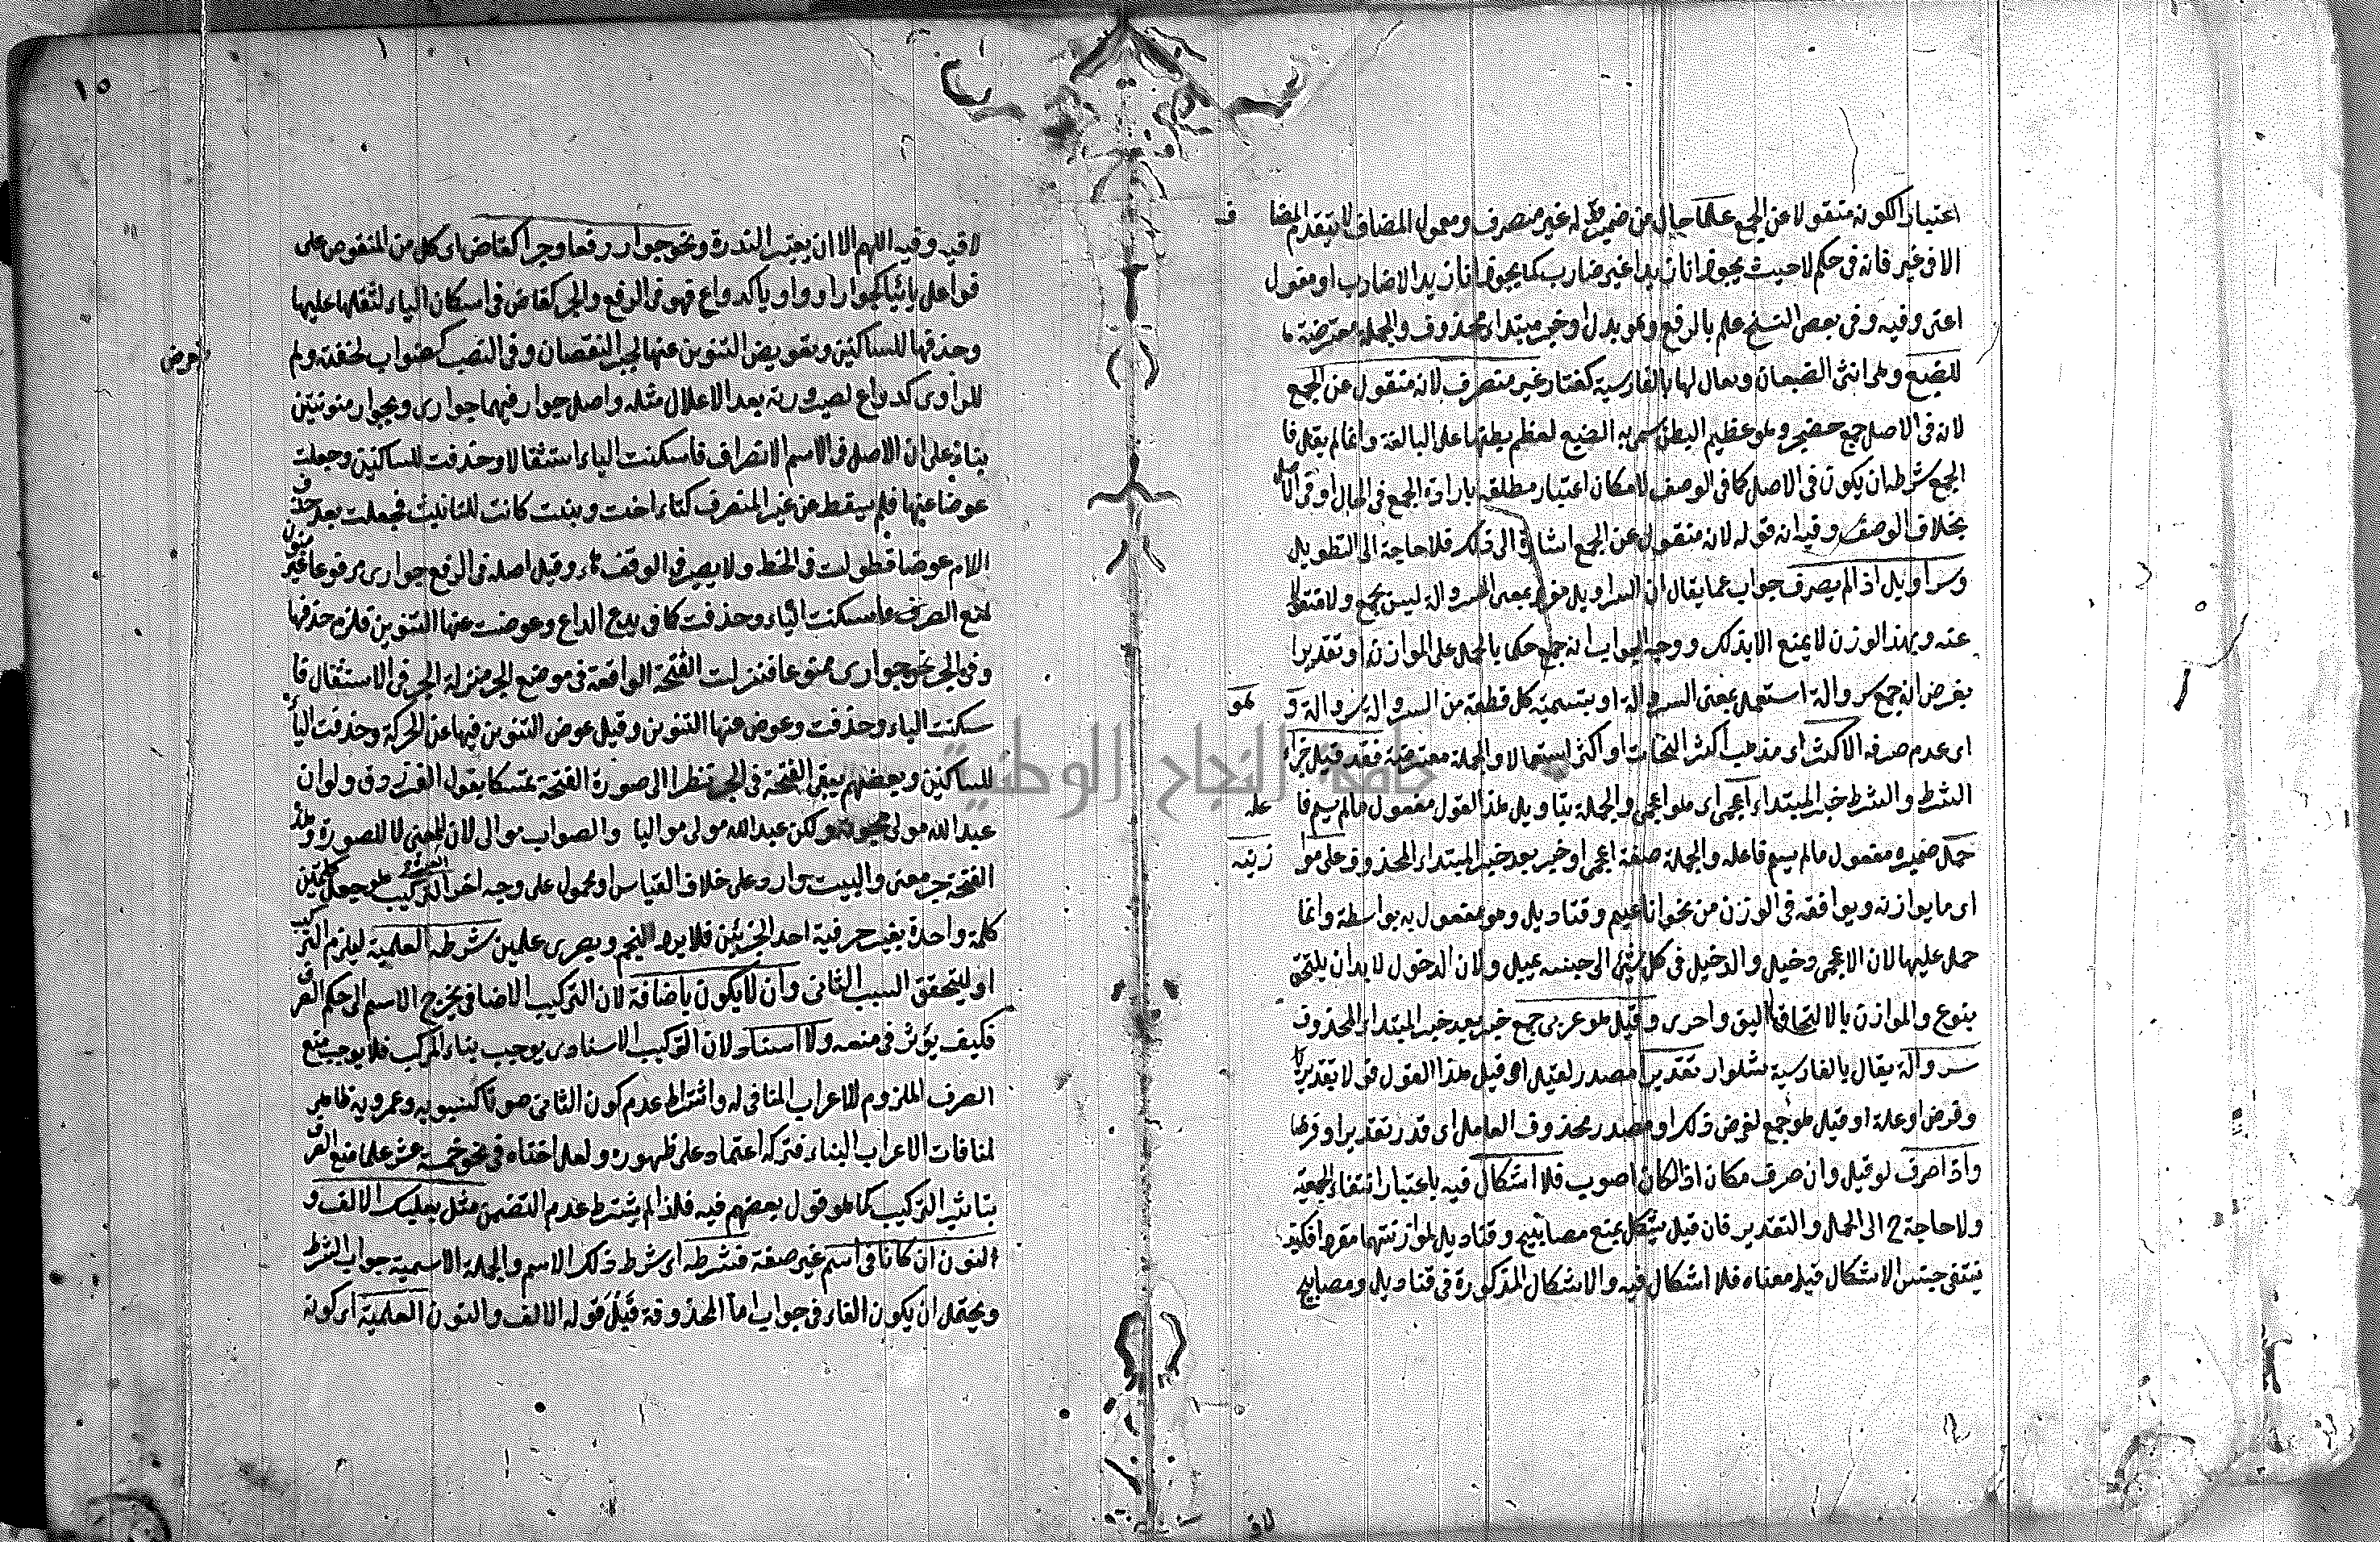 اعتبارا لكونه منقولا عن الجمع علما حال من ضمير له غير منصرف ومعمول المضاف لا يتقدم المضاف
الا في غير فانه في حكم لا حيث يجوز انا زيدا غير ضارب كما يجوز انا زيدا لا ضارب او مفعول
اعنى وفيه وفي بعض النسخ علم بالرفع وهو بدل او خبر مبتداء محذوف والجملة معترضة
للضبع وهى انثى الضبعان ويقال لها بالفارسية كفتار غير منصرف لانه منقول عن الجمع
لانه في الاصل جمع حضجر وهو عظيم البطن سمى به الضبع لعظم بطنها على المبالغة وانما لم يقل فا
الجمع شرطه ان يكون في الاصل كما في الوصف لامكان اعتبار مطلقه بارادة الجمع في الحال او في الاصل
بخلاف الوصف وفيه انه قوله لانه منقول عن الجمع اشارة الى ذلك فلا حاجة الى التطويل
وسراويل اذا لم يصرف جواب عما يقال ان السراويل مفرد بمعنى السروالة ليس بجمع ولا منقولا
عنه وبهذا الوزن لا يمنع الا بذلك ووجه الجواب انه جمع حكما بالحمل على الموازن او تقديرا
بفرض انه جمع سروالة استعمل بمعنى السروالة او بتسمية كل قطعة من السروالة سروالة و هو
اى عدم صرفه الاكثر اى مذهب اكثر النحات او اكثر استعمالا والجملة معترضة فقد قيل جزاء
الشرط والشرط خبر المبتداء اعجمى اى هو اعجمى والجملة بتاويل هذا القول مفعول ما لم يسم فا عله
حمل ضميره مفعول ما لم يسم فاعله والجملة صفة اعجمى او خبر بعد خبر المبتداء المحذوف على موا زنه
اى ما يوازنه ويوافقه في الوزن من نحو اناعيم وقناديل وهو مفعول به بواسطة وانما
حمل عليها لان الاعجمى دخيل والدخيل في كل شئ الى جنسه يميل ولان الدخول لا بد ان يلتحق
بنوع والموازن بالالتحاق اليق واحرى وقيل هو عربى جمع خبر بعد خبر المبتداء المحذوف
سروالة يقال بالفارسية شلوار تقديرا مصدر لقيل اى قيل هذا القول قولا تقديريا
وفرض او علة او قيل هو جمع لفرض ذلك او مصدر محذوف العامل اى قدر تقديرا وفرضا
واذا صرف لو قيل وان صرف مكان اذا لكان اصوب فلا اشكال فيه باعتبار انتفاء الجمعية
ولا حاجة ح الى الحمل والتقدير فان قيل يشكل بمنع مصابيح وقناديل لموازنتهما مفردا فكيف
ينتفى جنس الاشكال قيل معناه فلا اشكال فيه والاشكال المذكورة في قناديل ومصابيح
لا فيه
١٥
لا فيه وفيه اللهم الا ان يعتبر الندرة ونحو جوار رفعا وجرا كقاض اى كل من المنقوص على
فواعل يائيا كجوار او واويا كدواع فهو في الرفع والجر كقاض في اسكان الياء لثقلها عليها
وحذفها للساكنين وتعويض التنوين عنها لجبر النقصان وفي النصب كضوارب لخفته ولم
للواوى كدواع لصيرورته بعد الاعلال مثله واصل جوار فيهما جوارى وبجوار منونتين
بناء على ان الاصل في الاسم الانصراف فاسكنت الياء استثقالا وحذفت للساكنين وجعلت
عوضا عنها فلم يسقط من غير المنصرف كتاء اخت وبنت كانت للتانيث فجعلت بعد حذف
اللام عوضا فطولت في الخط ولا يصير في الوقف هاء وقيل اصله في الرفع جوارى مرفوعا غير منون
لمنع الصرف فاسكنت الياء وحذفت كما في يدع الداع وعوضت عنها التنوين فلزم حذفها
وفي الجر نحو جوارى ممنوعا فنزلت الفتحة الواقعة في موضع الجر منزلة الجر في الاستثقال فا
سكنت الياء وحذفت وعوض عنها التنوين وقيل عوض التنوين فيها عن الحركة وحذفت الياء
للساكنين وبعضهم يبقى الفتحة في الجر نظرا الى صورة الفتحة تمسكا بقول الفرزدق ولو ان
عبد الله مولى هجوته ولكن عبد الله مولى مواليا والصواب موالى لان المعنى لا للصورة وهذه
الفتحة جر معنى والبيت وارد على خلاف القياس او محمول على وجه اخر التركيب هو جعل كلمتين
كلمة واحدة بغير حرفية احد الجزئين فلا يرد النجم وبصرى علمين شرطه العلمية ليلزم التركيب
او ليتحقق السبب الثانى وان لا يكون باضافة لان التركيب الاضافى يخرج الاسم الى حكم الصرف
فكيف يؤثر في منعه ولا اسناد لان التركيب الاسنادى يوجب بناء المركب فلا يوجب منع
الصرف الملزوم للاعراب المنافى له واشتراط عدم كون الثانى صوتا كسيبويه وعمرويه ظاهر
لمنافات الاعراب البناء فتركه اعتمادا على ظهوره ولعل اختاه في نحو خمسة عشر علما منع الصرف
بتاثير التركيب كما هو قول بعضهم فيه فلذا لم يشترط عدم التضمن مثل بعلبك الالف و
النون ان كانا في اسم غير صفة فشرطه اى شرط ذلك الاسم والجملة الاسمية جواب الشرط
ويحتمل ان يكون الفاء في جواب اما المحذوفة قبل قوله الالف والنون العلمية اى كونه
جامعة النجاح الوطنية